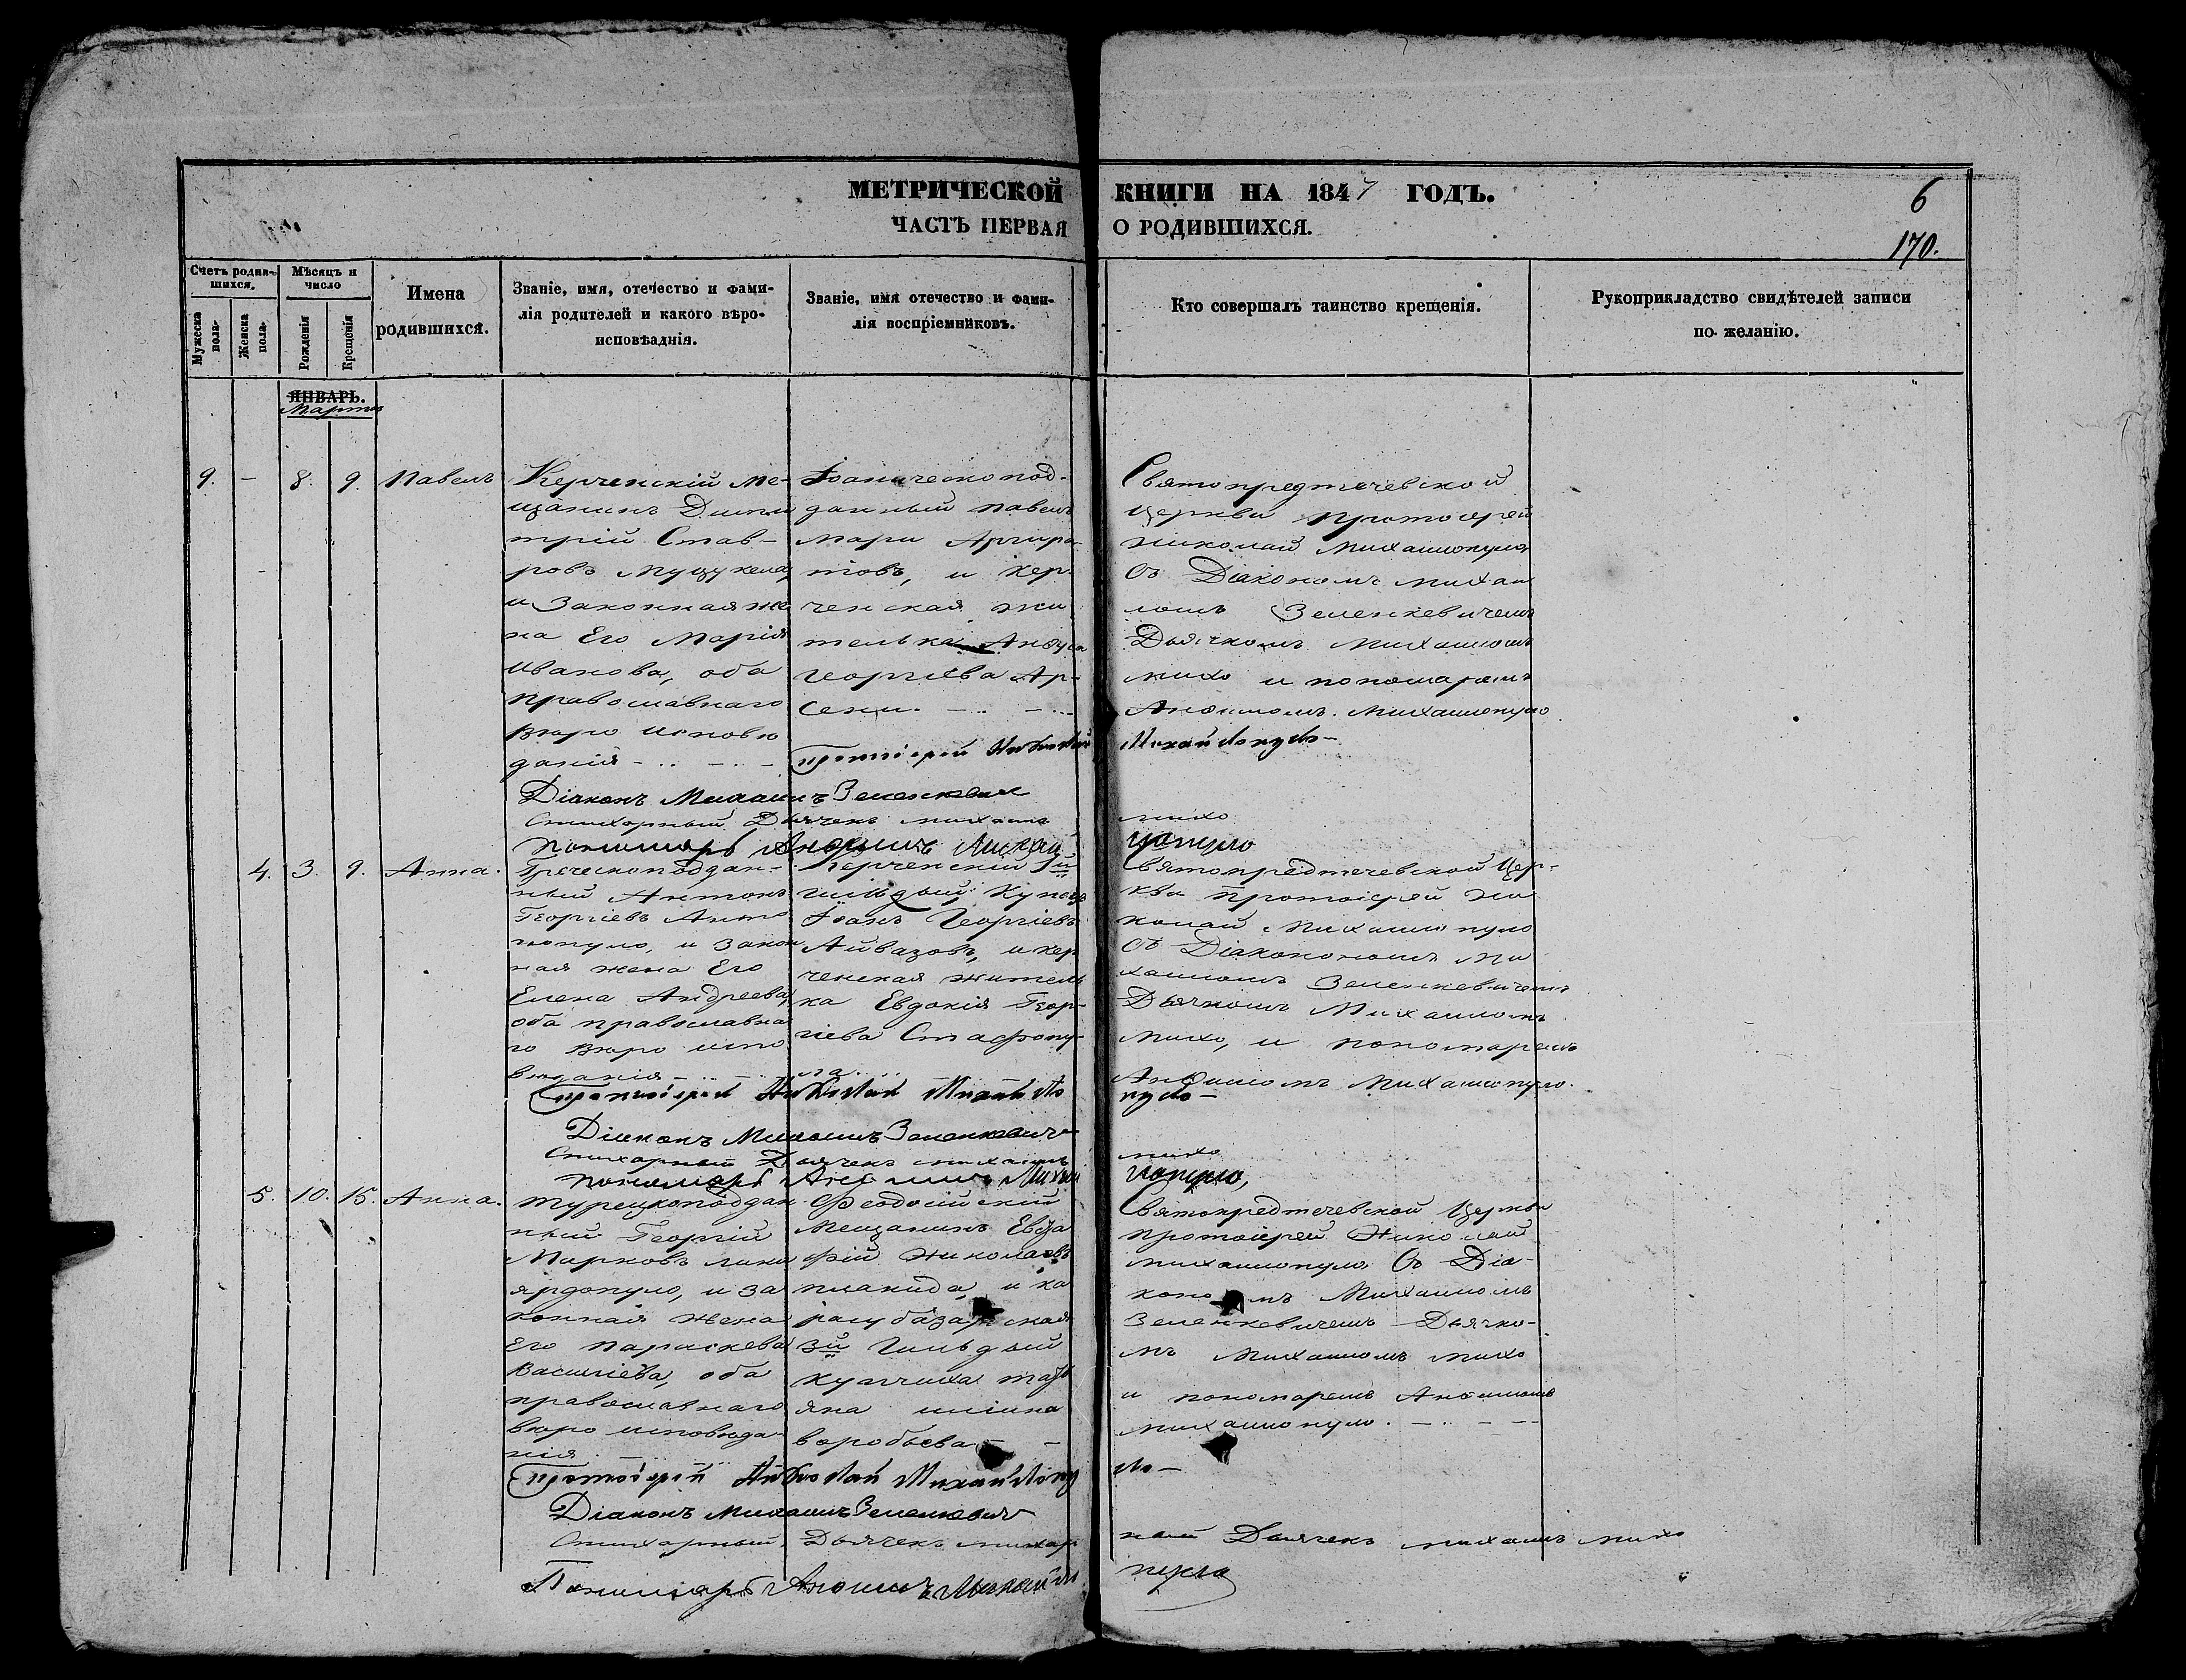 МЕТРИЧЕСКОЙ КНИГИ НА 1847 ГОДЪ.
6
ЧАСТЬ ПЕРВАЯ О РОДИВШИХСЯ.
170.
Счетъ родив-
шихся.
Мужеска
пола.
Женска
пола.
Мѣсяцъ и
число
Рожденія
Крещенія
Имена
родившихся.
Званіе, имя, отечество и фами-
лія родителей и какого вѣро-
исповѣаднія.
Званіе, имя отечество и фами-
лія воспріемниковъ.
Кто совершалъ таинство крещенія.
Рукоприкладство свидѣтелей записи
по желанію.
ЯНВАРЬ.
Мартъ
9. - 8. 9. Павелъ
Керченскій ме-
щанинъ Дими
трій Став-
ровъ
и Законная же
на Его Марія
Иванова, оба
православнаго
вѣро исповѣ
данія
Іоаническо под-
данный Павелъ
Мари Аргира
товъ, и Кер-
ченская жи
телька
Георгіева Ар-
сени.
Святопредтечевской
Церкви Протоіерей
Николай Михаилопуло
Съ Діакономъ Михаи
ломъ Зеленкевичемъ
Дьячкомъ Михаиломъ
Михо и пономаремъ
Анѳимомъ Михаилопуло
Протоіерей Николай Михайлопуло
Діаконъ Михаилъ Зеленкевич
Стихарный Дьячекъ Михаилъ Михо
Пономарь Анѳимъ Михаилопуло
4. 3. 9. Анна.
Греческоподдан-
ный Антонъ
Георгіевъ Анто
нопуло, и закон
ная жена Его
Елена Андреева,
оба православна
го вѣро испо
вѣданія
Керченскій й
гильдый Купецъ
Іоанъ Георгіевъ
Айвазовъ, и кер
ченская житель
ка Евдокія Геор-
гіева Стафопу-
ла
Святопредтечевской Цер-
кви Протоіерей Ни
колай Михаилопуло
Съ Діакономъ Ми
хаиломъ Зеленкевичемъ
Дьячкомъ Михаиломъ
Михо, и пономаремъ
Анѳимомъ Михаилопуло.
Протоіерей Николай Михайлопуло
Діаконъ Михаилъ Зеленкевичъ
Стихарный Дьячекъ Михаилъ Михо
Пономарь Анѳимъ Михаилопуло,
5. 10. 15. Анна.
Турецкоподдан
ный Георгій
Марковъ
и за
конная жена
Его Параскева
Василіева, оба
православнаго
вѣро исповѣда-
нія
Феодосійскій
Мещанинъ Евста
фій Николаевъ
Плакида, и ка
расубазарская
3й Гильдый
купчиха Таті
яна Ильина
Воробьева
Святопредтечевской Церкви
Протоіерей Николай
Михаилопуло Съ Діа-
кономъ Михаиломъ
Зеленкевичемъ Дьячко-
мъ Михаиломъ Михо
и пономаремъ Анѳимомъ
Михаилопуло.
Протоіерей Николай Михайлопуло
Діаконъ Михаилъ Зеленкевич
Стихарный Дьячекъ
ный Дьячекъ Михаилъ Михо
Пономарь Анѳимъ Михаилопуло